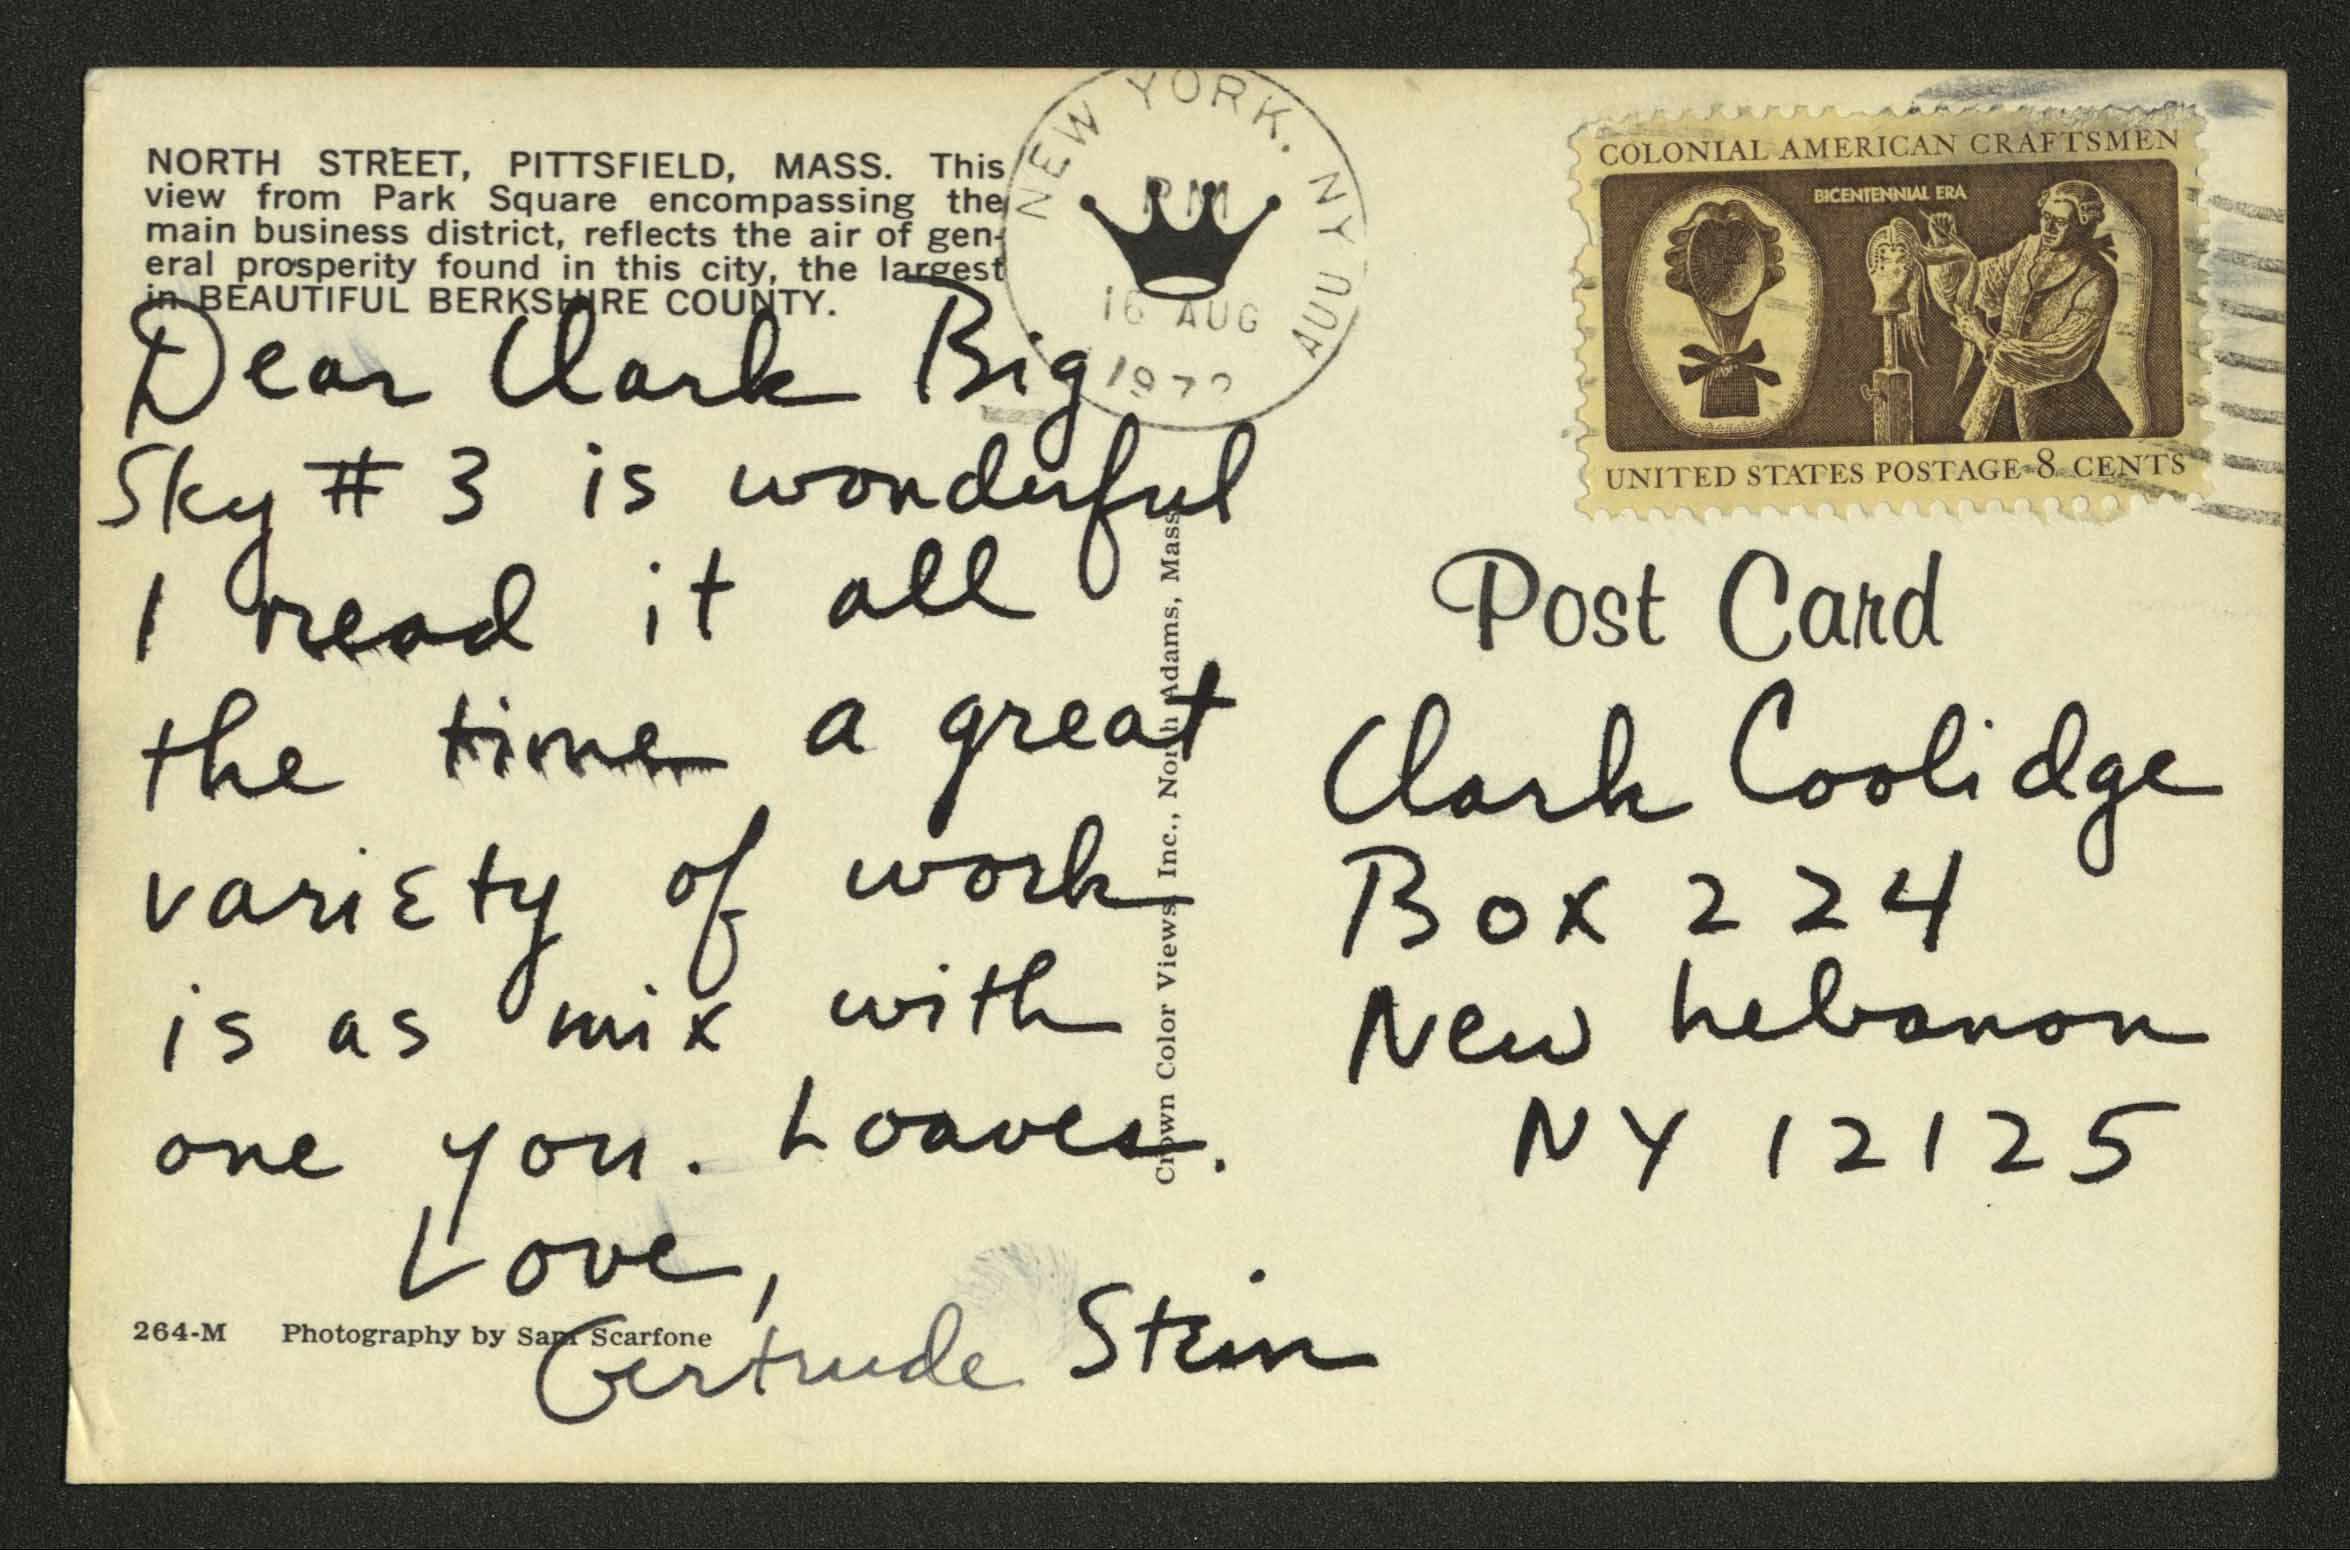 NORTH STREET, PITTSFIELD, MASS. This
view from Park Square encompassing the
main business district, reflects the air of gen-
eral prosperity found in this city, the largest
in BEAUTIFUL BERKSHIRE COUNTY.
NEW YORK, NY
PM
16 AUG
COLONIAL AMERICAN CRAFTSMEN
BICENTENNIAL ERA
UNITED STATES POSTAGE 8 CENTS
Dear Clark Big
Sky # 3 is wonderful
I read it all
the time a great
variety of work
is as mix with
one you. Loaves.
Love,
Gertrude Stein
264-M Photography by Sam Scarfone
Crown Color Views, Inc., North Adams, Mass.
Post Card
Clark Coolidge
Box 224
New Lebanon
NY 12125